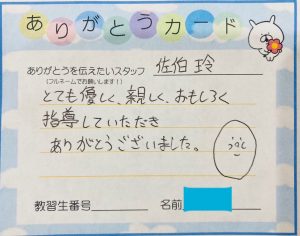 ありがとうカード
ありがとうを伝えたいスタッフ 佐伯 玲
(フルネームでお願いします!)
とても優しく、親しく、おもしろく
指導していただき
ありがとうございました。
教習生番号 名前